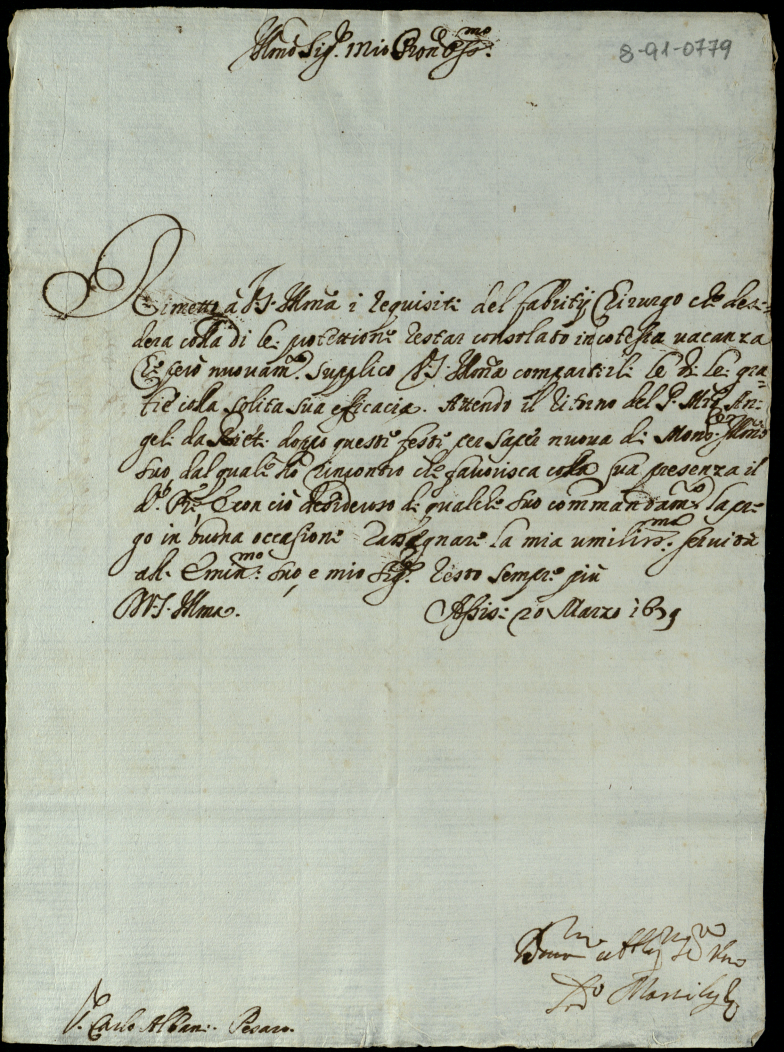 Illmo Sig.r mio Pron Col.mo
8-91-0779
Rimetto à V.S. Illma i requisiti del Fabritij Chirurgo che desi=
dera colla di lei protettione restar consolato in cotesta vacanza
E però nuovam.te supplico V.S. Illma compartirli le di lei gra=
tie colla solita sua efficacia. Attendo il ritorno del P. Mro An=
geli da Rieti doppo queste feste per saper nuova di Mons.r Illmo
suo, dal quale hò rincontro che favorisca colla sua presenza il
d.o P.re E con ciò desideroso di qualche suo commandam.to la pre=
go in buona occasione rassegnare la mia umiliss.ma servitù
all' Emin.mo suo, e mio Sig.r resto sempre più
D V.S. Illma. Assisi 20 Marzo 16
S. Carlo Albani. Pesaro.